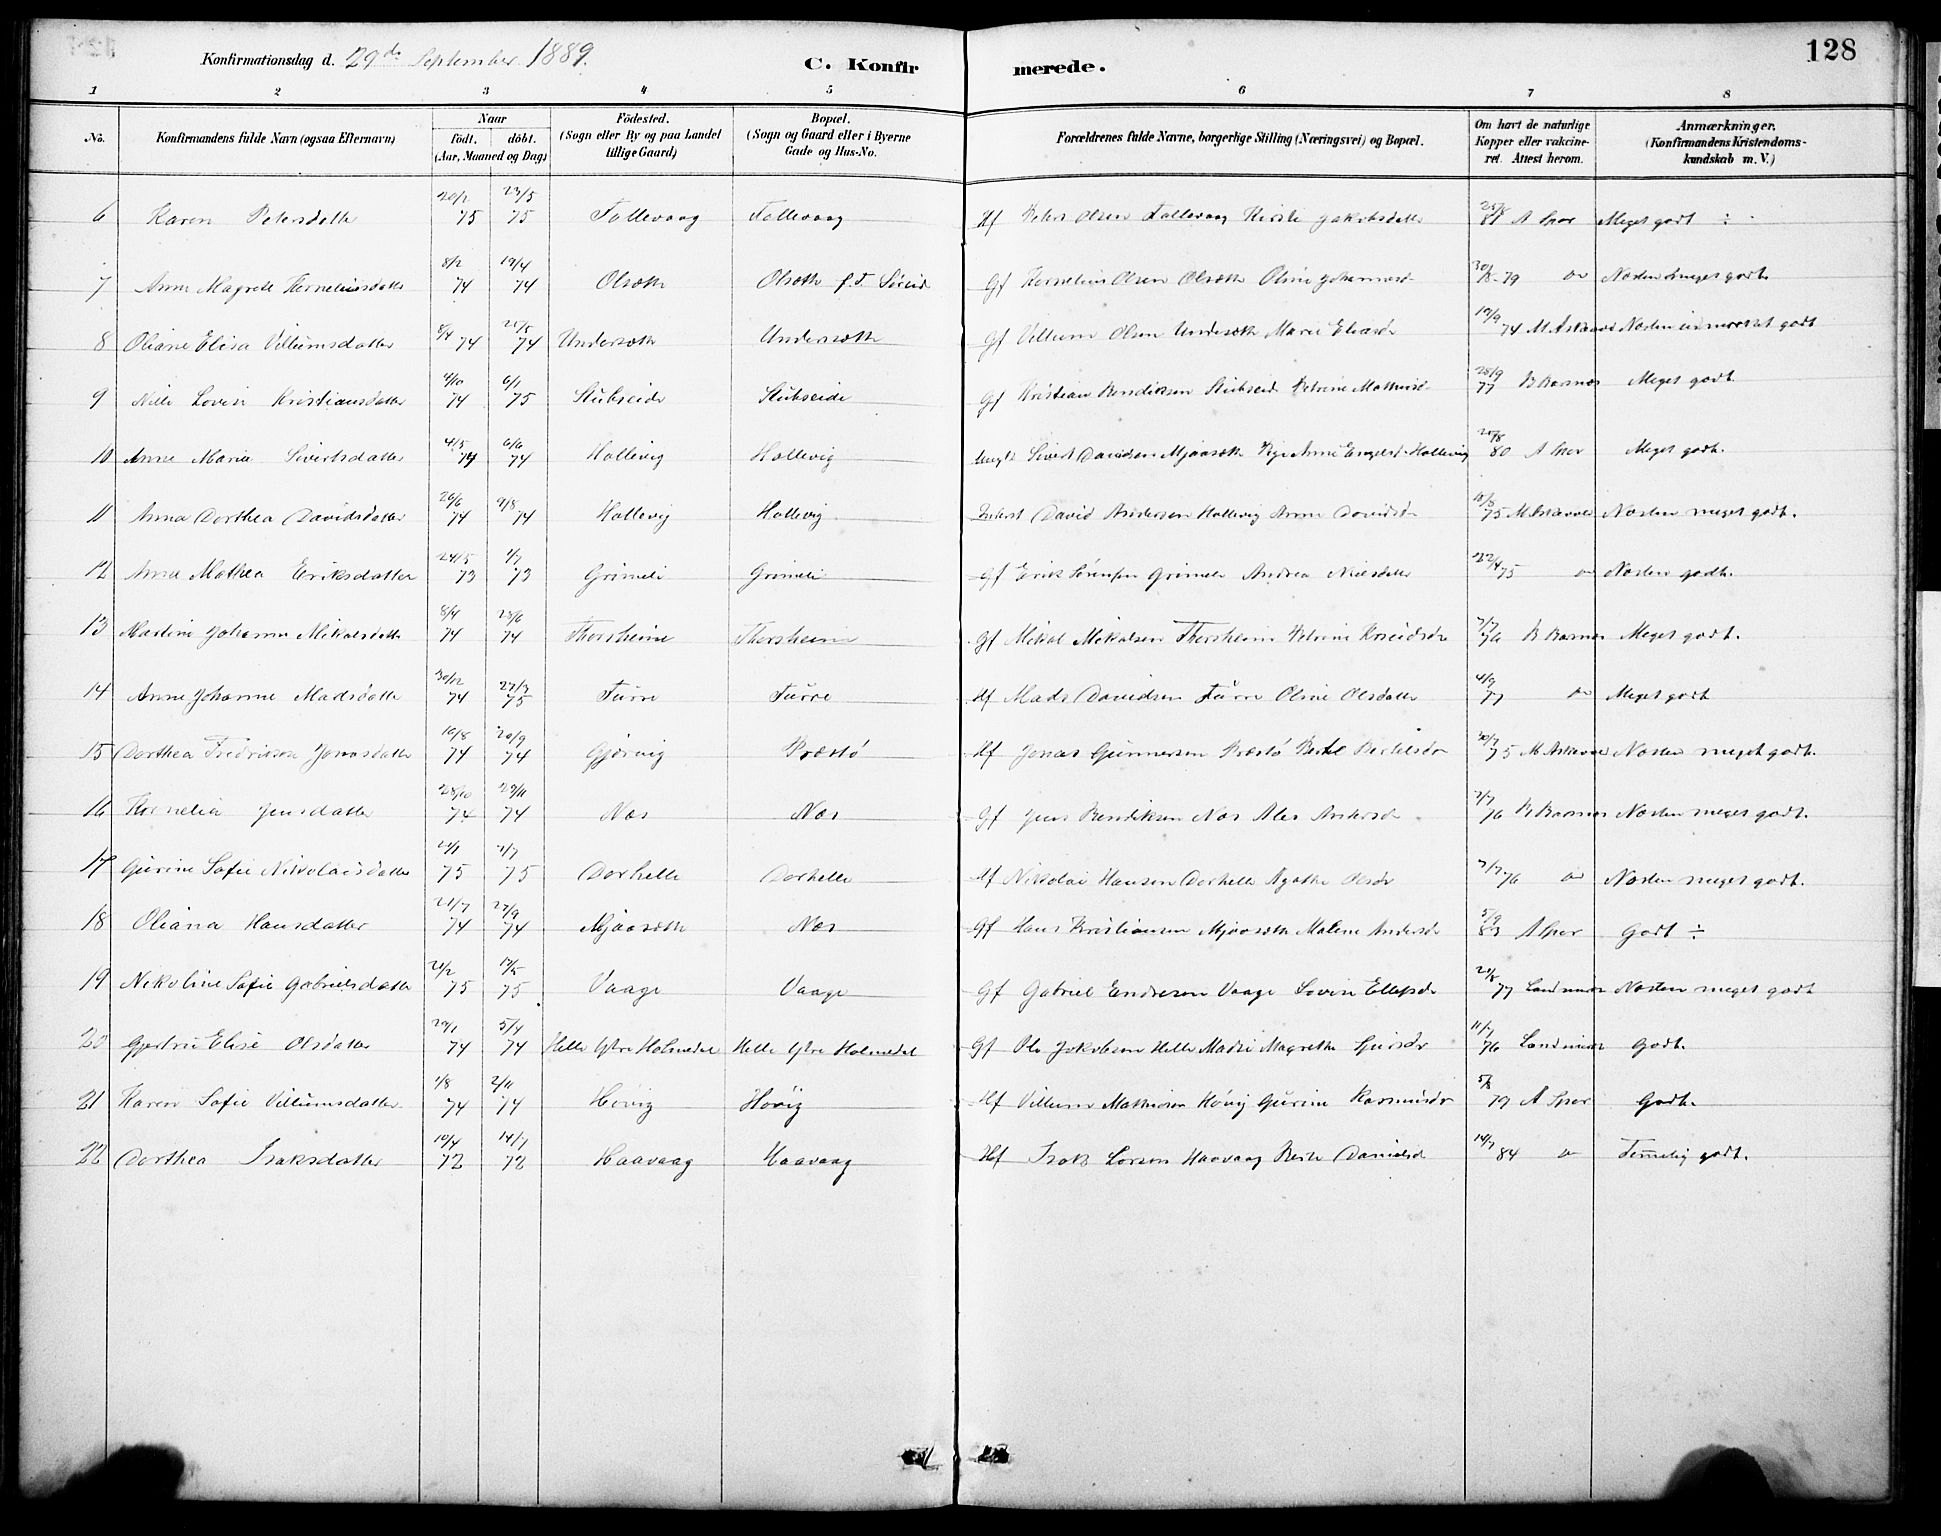 Konfirmationsdag d. 29de September 1889.
C. Konfirmerede.
128
1 2 3 4 5 6 7 8
No.
Konfirmandens fulde Navn (ogsaa Efternavn)
Naar
födt. döbt.
(Aar, Maaned og Dag)
Födested.
(Sogn eller By og paa Landet
tillige Gaard)
Bopæl.
(Sogn og Gaard eller i Byerne
Gade og Hus-No.
Forældrenes fulde Navne, borgerlige Stilling (Næringsvei) og Bopæl.
Om havt de naturlige
Kopper eller vakcine-
ret. Attest herom.
Anmærkninger.
(Konfirmandens Kristendoms-
kundskab m. V.)
6 Karen Petersdatter 20/2 75 23/5 75 Tollevaag Tollevaag Hf Peter Olsen Tollevaag Kirsti Jakobsdatter 81 A Spor Meget godt ÷
7 Anne Magrete Korneliusdatter 8/2 74 19/4 74 Olsæth Olsæth f.T. Søreid Gf Kornelius Olsen Olsæth Oline Johannesd 79 do Næsten meget godt
8 Oliane Elisa Villumsdatter 8/4 74 25/5 74 Undersæth Undersæth Gf Villum Olsen Undersæth Marie Eliasdr 19/9 74 M. Askevold Næsten udmærket godt
9 Nille Lovise Kristiansdatter 4/10 74 6/1 75 Stubseide Stubseide Gf Kristian Bendiksen Stubseid Petrine Mathiasd 25/9 77 B Barnes Meget godt
10 Anne Marie Sivertsdatter 4/5 74 6/6 74 Hollevig Hollevig Ungk Sivert Davidsen Mjaasæth Pige Anne Engelsd Hollevig 20/8 80 A Spor Meget godt.
11 Anna Dorthea Davidsdatter 26/6 74 9/8 74 Hollevig Hollevig Inderst David Andersen Hollevig Anne Davidsdr 75 M. Askevold Næsten meget godt.
12 Anne Mathea Eriksdatter 24/5 73 1/7 73 Grimeli Grimeli Gf Erik Sørensen Grimeli Andrea Nielsdatter 75 do Næsten godt.
13 Martine Johanne Mikalsdatter 8/4 74 25/6 74 Thorsheim Thorsheim Gf Mikal Mikalsen Thorsheim Petrine 7/7 76 B Barnes Meget godt.
14 Anne Johanne Madsdatter 30/12 74 27/3 75 Furre Furre Hf Mads Davidsen Furre Oline Olsdatter 4/9 77 do Meget godt
15 Dorthea Fredrikke Jonasdatter 16/8 74 20/9 74 Gjørvig Præstø Hf Jonas Gunnersen Præstø Bertel Bertelsdr 30/7 75 M Askevold Næsten meget godt.
16 Kornelia Jensdatter 28/10 74 29/11 74 Nes Nes Gf Jens Bendiksen Nes Ales Andersd 7/7 76 B Barnes Næsten meget godt.
17 Gurine Sofie Nikolaisdatter 75 75 Dorhelle Dorhelle Hf Nikolai Hansen Dorhelle Agathe Olsdr 7/7 76 do Næsten meget godt.
18 Oliana Hansdatter 21/7 74 27/9 74 Mjaasæth Nes Gf Hans Kristiansen Mjaasæth Malene Andersdr 5/9 83 A Spor Godt ÷
19 Nikoline Sofie Gabrielsdatter 21/2 75 13/5 75 Vaage Vaage Gf Gabriel Endresen Vaage Lovise Ellefsdr 77 Landmark Næsten meget godt
20 Gjertru Elise Olsdatter 29/1 74 5/4 74 Helle Ytre Holmedal Helle Ytre Holmedal Gf Ole Jakobsen Helle Madsi Magrethe Sjursdr 11/7 76 Landmark Godt.
21 Karen Sofie Villumsdatter 1/8 74 2/11 74 Høvig Høvig Hf Villum Mathiasen Høvig Gurine Rasmusdr 5/8 79 A Spor Godt.
22 Dorthea Isaksdatter 10/4 72 14/7 72 Haavaag Haavaag Hf Isak Larsen Haavaag Danielsd 14/7 84 do Temmelig godt.